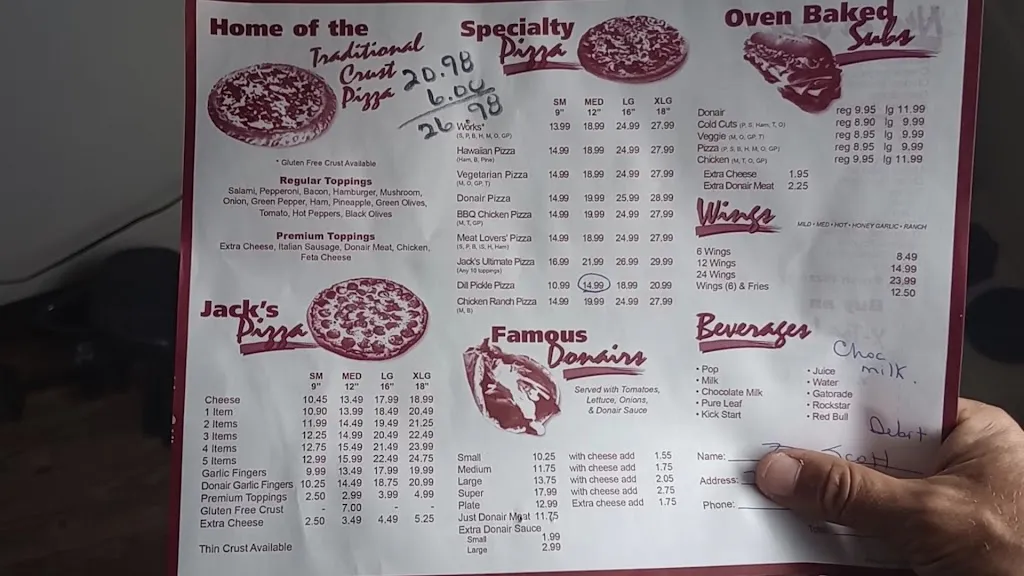 Home of the
Traditional
Crust
Pizza
20.98
6.00
26.98
* Gluten Free Crust Available
Regular Toppings
Salami, Pepperoni, Bacon, Hamburger, Mushroom,
Onion, Green Pepper, Ham, Pineapple, Green Olives,
Tomato, Hot Peppers, Black Olives
Premium Toppings
Extra Cheese, Italian Sausage, Donair Meat, Chicken,
Feta Cheese
Jack's
Pizza
SM MED LG XLG
9" 12" 16" 18"
Cheese 10.45 13.49 17.99 18.99
1 Item 10.90 13.99 18.49 20.49
2 Items 11.99 14.49 19.49 21.25
3 Items 12.25 14.99 20.49 22.49
4 Items 12.75 15.49 21.49 23.99
5 Items 12.99 15.99 22.49 24.75
Garlic Fingers 9.99 13.49 17.99 19.99
Donair Garlic Fingers 10.25 14.49 18.75 20.99
Premium Toppings 2.50 2.99 3.99 4.99
Gluten Free Crust - 7.00 - -
Extra Cheese 2.50 3.49 4.49 5.25
Thin Crust Available
Specialty
Pizza
SM MED LG XLG
9" 12" 16" 18"
Works* 13.99 18.99 24.99 27.99
(S, P, B, H, M, O, GP)
Hawaiian Pizza 14.99 18.99 24.99 27.99
(Ham, B, Pine)
Vegetarian Pizza 14.99 18.99 24.99 27.99
(M, O, GP, T)
Donair Pizza 14.99 19.99 25.99 28.99
BBQ Chicken Pizza 14.99 19.99 24.99 27.99
(M, T, GP)
Meat Lovers' Pizza 14.99 18.99 24.99 27.99
(S, P, B, IS, H, Ham)
Jack's Ultimate Pizza 16.99 21.99 26.99 29.99
(Any 10 toppings)
Dill Pickle Pizza 10.99 14.99 18.99 20.99
Chicken Ranch Pizza 14.99 19.99 24.99 27.99
(M, B)
Famous
Donairs
Served with Tomatoes,
Lettuce, Onions,
& Donair Sauce
Small 10.25 with cheese add 1.55
Medium 11.75 with cheese add 1.75
Large 13.75 with cheese add 2.05
Super 17.99 with cheese add 2.75
Plate 12.99 Extra cheese add 1.75
Just Donair Meat 11.75
Extra Donair Sauce
Small 1.99
Large 2.99
Oven Baked
Subs
Donair reg 9.95 lg 11.99
Cold Cuts (P, S, Ham, T, O) reg 8.90 lg 9.99
Veggie (M, O, GP, T) reg 8.95 lg 9.99
Pizza (P, S, B, H, M, O, GP) reg 8.95 lg 9.99
Chicken (M, T, O, GP) reg 9.95 lg 11.99
Extra Cheese 1.95
Extra Donair Meat 2.25
Wings
MILD • MED • HOT • HONEY GARLIC • RANCH
6 Wings 8.49
12 Wings 14.99
24 Wings 23.99
Wings (6) & Fries 12.50
Beverages
Choc
milk.
• Pop • Juice
• Milk • Water
• Chocolate Milk • Gatorade
• Pure Leaf • Rockstar
• Kick Start • Red Bull
Debit
Name: Scott
Address:
Phone: